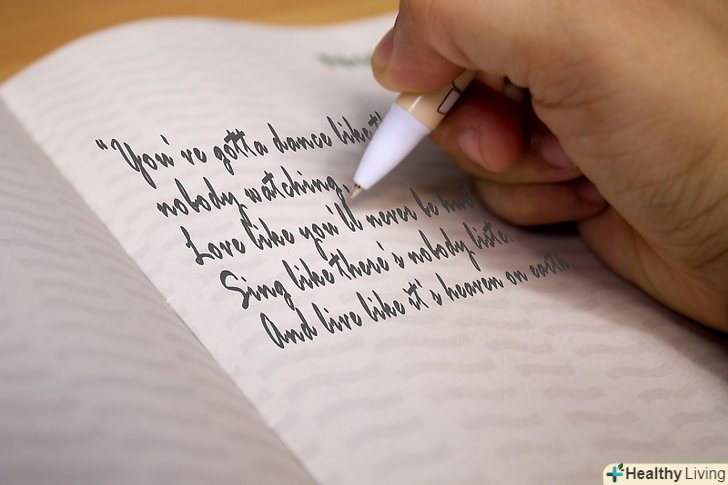 "You've gotta dance like
nobody watching,
Love like you'll never be
Sing like there's nobody
And live like it's heaven on earth.
Healthy Living